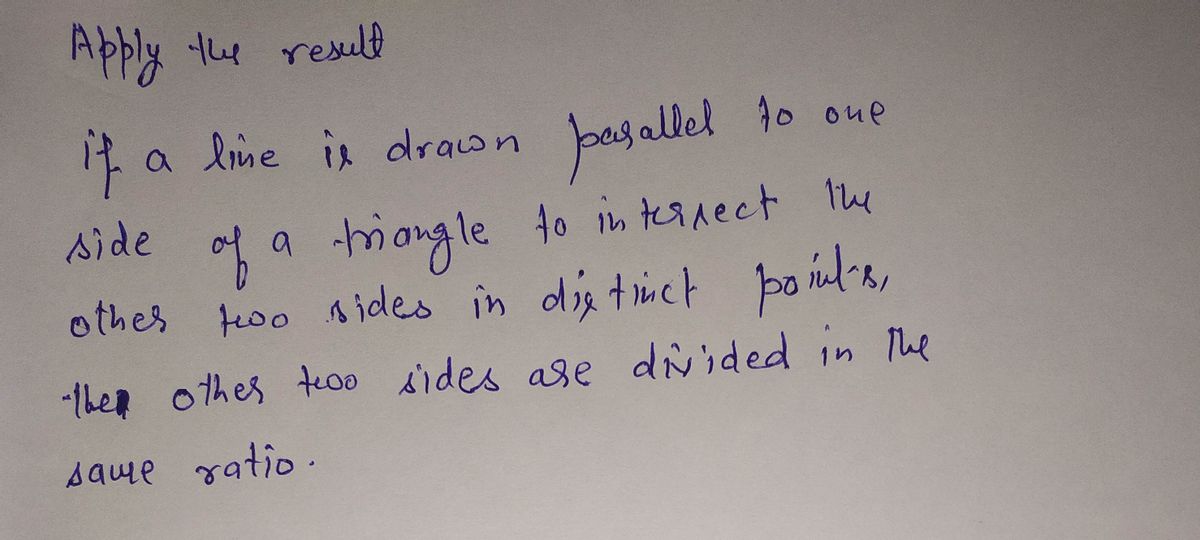 Apply the result
if a line is drawn parallel to one
side of a triangle to intersect the
other two sides in distinct points,
then other two sides are divided in the
same ratio.